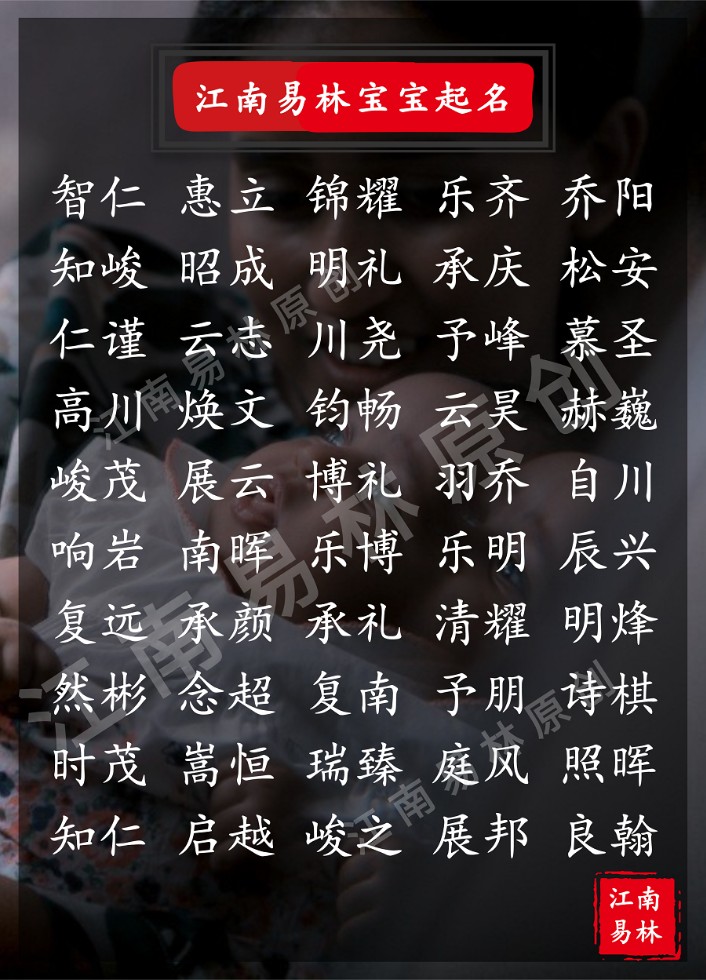 江南易林宝宝起名
智仁 惠立 锦耀 乐齐 乔阳
知峻 昭成 明礼 承庆 松安
仁谨 云志 川尧 予峰 慕圣
高川 焕文 钧畅 云昊 赫巍
峻茂 展云 博礼 羽乔 自川
响岩 南晖 乐博 乐明 辰兴
复远 承颜 承礼 清耀 明烽
然彬 念超 复南 予朋 诗棋
时茂 嵩恒 瑞臻 庭风 照晖
知仁 启越 峻之 展邦 良翰
江南易林原创
江南易林原创
江南易林原创
江南
易林